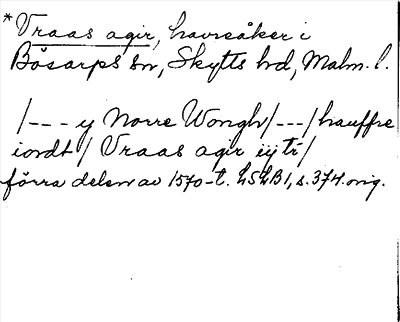 *Vraas agir, havreåker i
Bösarps sn, Skytts hd, Malm. l.
/--- y Norre Wongh/---/hauffre
iordt/ Vraas agir iÿ tí/
förra delen av 1570-t. LSLB1, s. 374. orig.